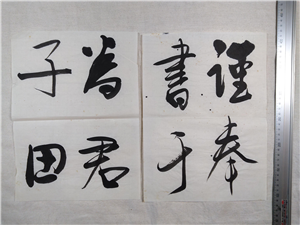 謹奉
書于
為君
子田